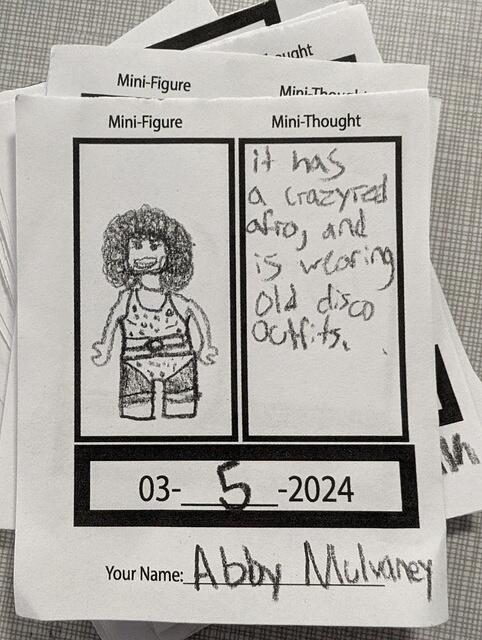 Thought
Mini-Figure
Mini-Thought
Mini-Figure
Mini-Thought
it has
a crazy red
afro, and
is wearing
old disco
outfits.
03- 5 -2024
Your Name: Abby Mulvaney